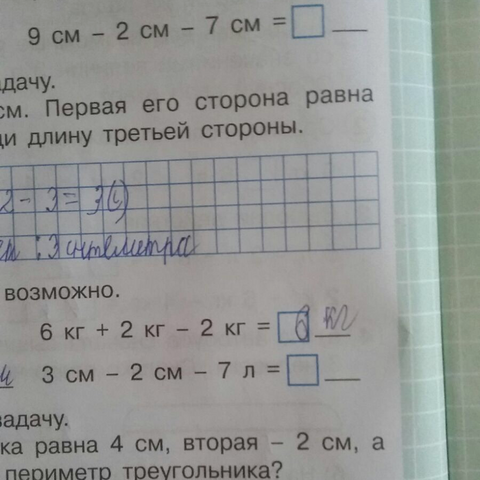 9 см – 2 см – 7 см =
адачу.
см. Первая его сторона равна
ди длину третьей стороны.
2 - 3 = 3(
: 3 антеметра
возможно.
6 кг + 2 кг – 2 кг = 6 кг
3 см – 2 см – 7 л =
задачу.
ка равна 4 см, вторая – 2 см, а
периметр треугольника?